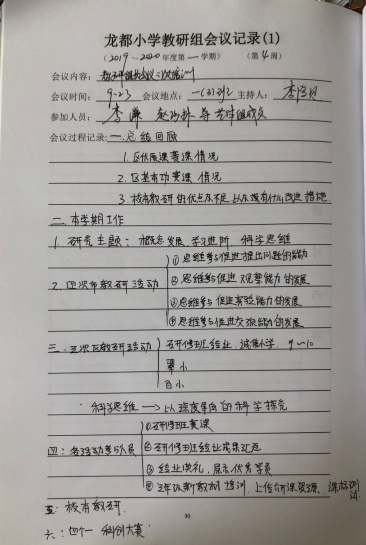 龙都小学教研组会议记录(1)
(2019~2020年度第一学期) (第4周)
会议内容：教研组长会议二次培训
会议时间：9-23 会议地点：一(3)班 主持人：李
参加人员：李 等 组成员
会议过程记录：一.总结回顾
1.区优质课赛课情况
2.区基本功赛课情况
3.校本教研的优点及不足以及现有什么改进措施
二.本学期工作
1.研究主题：概念发展、学习进阶、科学思维
①思维参与促进提出问题的能力
2.四次市教研活动 ②思维参与促进观察能力的发展
③思维参与促进实验能力的发展
④思维参与促进交流能力的发展
三.三次区教研活动 研修班结业、小学 9~10
小
百小
科学思维→以深度导向的科学探究
①研修班赛课
四：各活动参与人员 ②研修班结业成果汇报
③结业典礼，展示优秀学员
④三年级新教材培训，上传公开课资源、课标测试
五：校本教研.
30
六：四个一 科创大赛